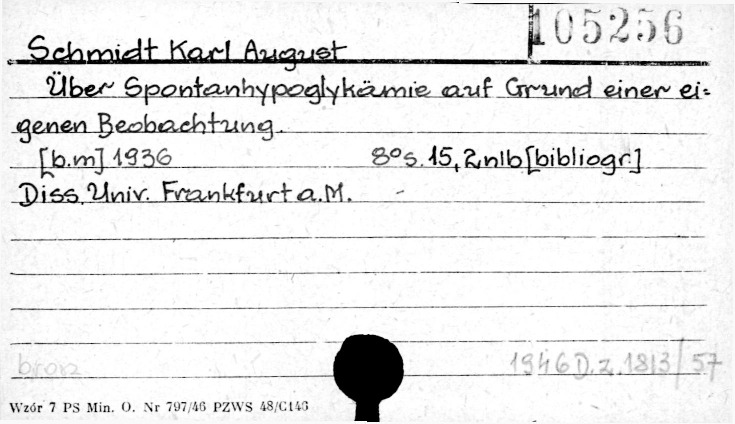 105256
Schmidt Karl August
Über Spontanhypoglykämie auf Grund einer ei=
genen Beobachtung.
[b.m] 1936 8° s. 15, 2 nlb [bibliogr.]
Diss. Univ. Frankfurt a. M.
brosz
1946 D. z. 1813/57
Wzór 7 PS Min. O. Nr 797/46 PZWS 48/C146